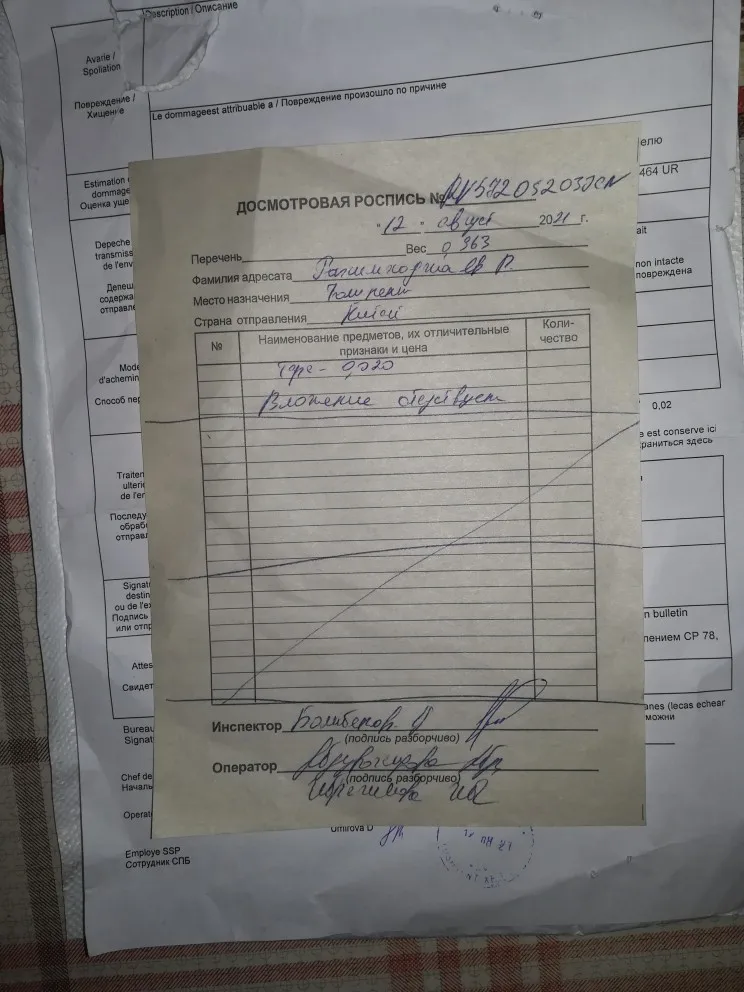 Description / Описание
Avarie /
Spoliation
Повреждение /
Хищение
Le dommageest attribuable a / Повреждение произошло по причине
Estimation
dommage
Оценка уще
елю
464 UR
ДОСМОТРОВАЯ РОСПИСЬ №
"12" август 2021 г.
Перечень Вес 0,363
Фамилия адресата
Место назначения Ташкент
Страна отправления Китай
№ Наименование предметов, их отличительные признаки и цена Коли-чество
Вложение отсутвует
Depeche
transmiss
de l'env
Депеш
содержа
отправле
ait
non intacte
повреждена
Mode
d'achemin
Способ пер
0,02
e est conserve ici
раниться здесь
Traiten
ulterie
de l'er
Последу
обраб
отправл
Signat
destin
ou de l'ex
Подпись
или отпр
n bulletin
лением CP 78,
Attes
Свидет
anes (lecas echear
можни
Bureau
Signat
Инспектор
(подпись разборчиво)
Оператор
(подпись разборчиво)
Chef de
Началь
Operat
Umirova D
Employe SSP
Сотрудник СПБ